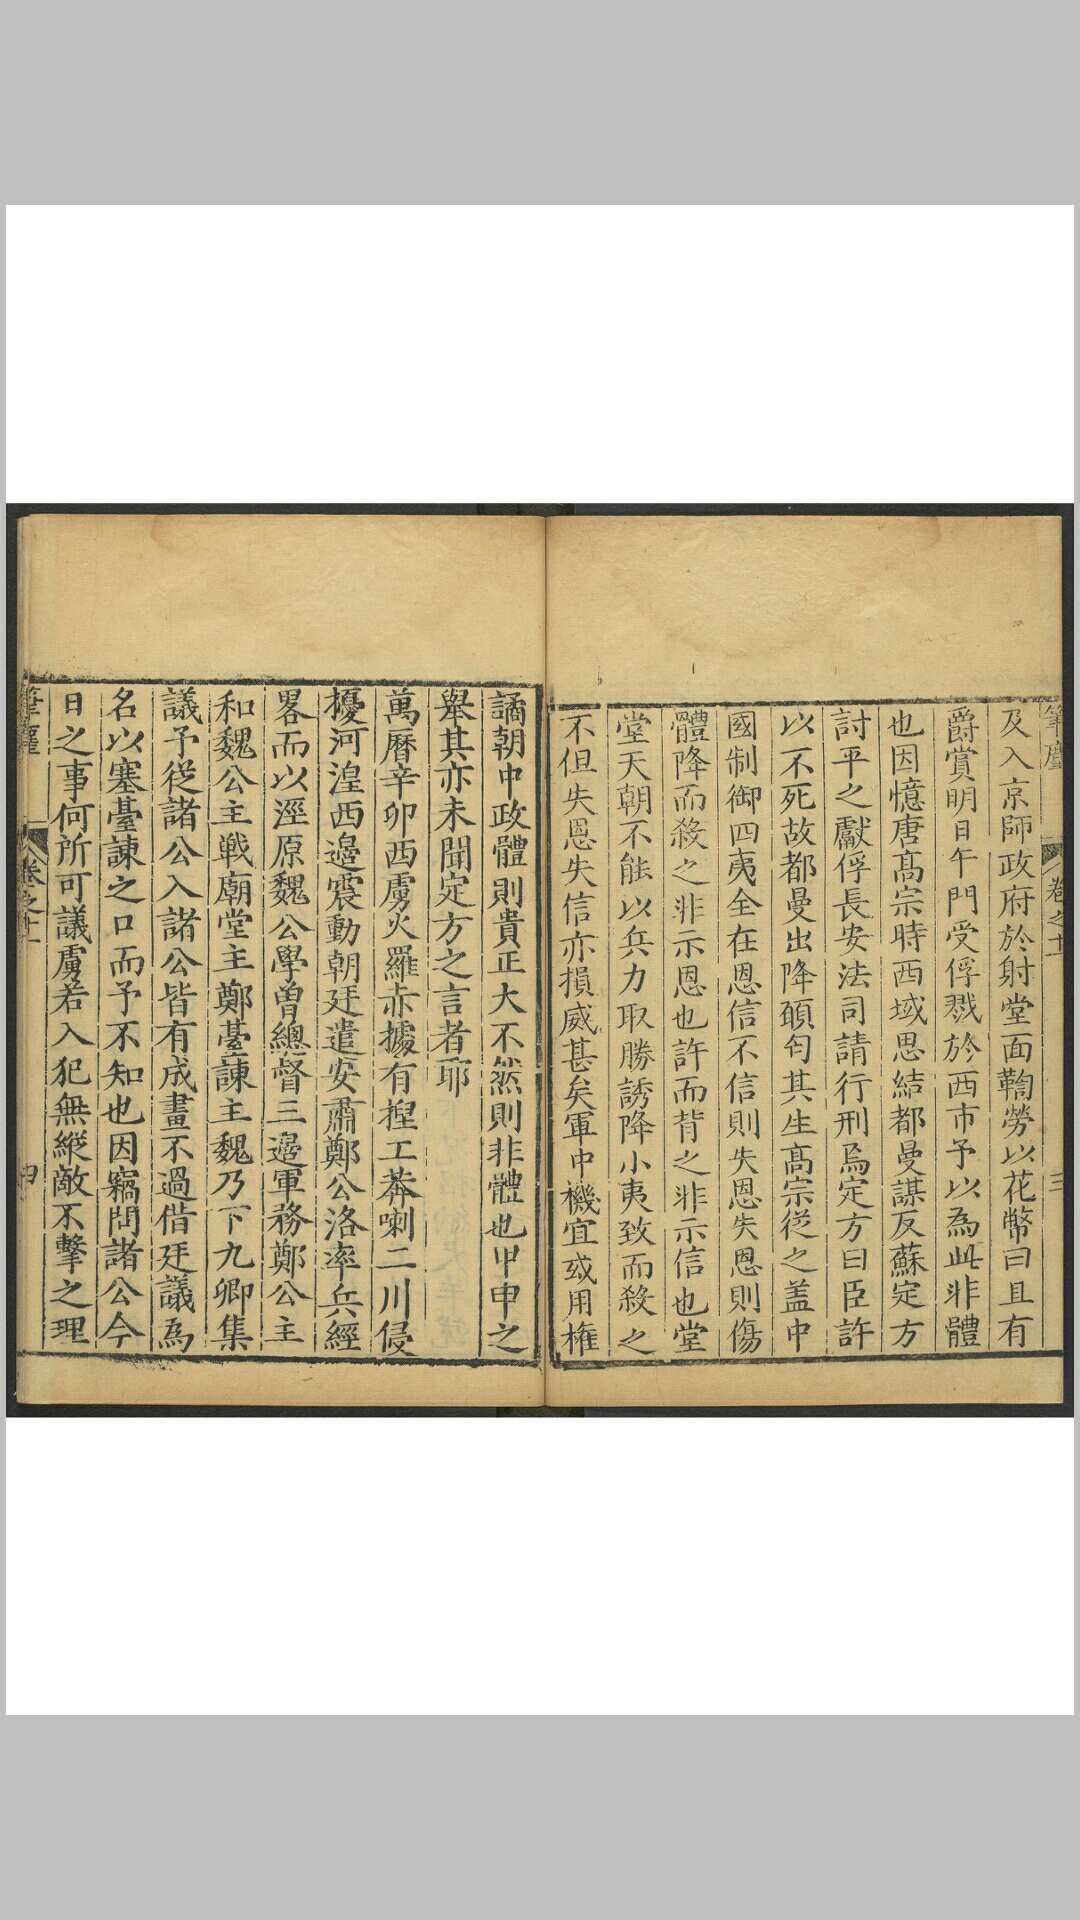 筆麈 卷之十一 三
及入京師政府於射堂面鞫勞以花幣曰且有
爵賞明日午門受俘戮於西市予以為此非體
也因憶唐髙宗時西域思結都曼謀反蘇定方
討平之獻俘長安法司請行刑烏定方曰臣許
以不死故都曼出降頋匄其生髙宗從之盖中
國制御四夷全在恩信不信則失恩失恩則傷
體降而殺之非示恩也許而背之非示信也堂
堂天朝不能以兵力取勝誘降小夷致而殺之
不但失恩失信亦損威甚矣軍中機宜或用權
譎朝中政體則貴正大不然則非體也甲申之
舉其亦未聞定方之言者耶
萬曆辛卯西虜火羅赤據有揑工莽喇二川侵
擾河湟西邉震動朝廷遣安肅鄭公洛率兵經
畧而以涇原魏公學曾總督三邉軍務鄭公主
和魏公主戰廟堂主鄭䑓諫主魏乃下九卿集
議予從諸公入諸公皆有成畫不過借廷議為
名以塞䑓諫之口而予不知也因竊問諸公今
日之事何所可議虜若入犯無縱敵不擊之理
筆麈 卷之十一 四